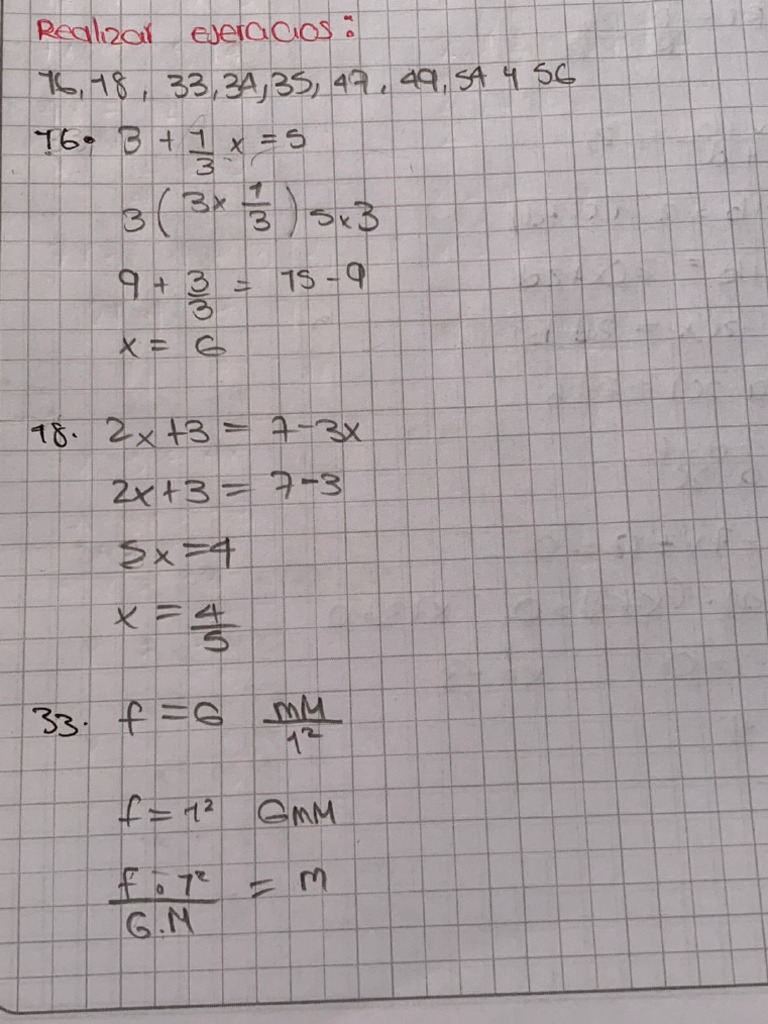 Realizar ejercicios:
16, 18, 33, 34, 35, 47, 49, 54 y 56
16. 3 + 1/3 x = 5
3 ( 3x 1/3 ) 5x3
9 + 3/3 = 15 - 9
x = 6
18. 2x + 3 = 7 - 3x
2x + 3 = 7 - 3
5x = 4
x = 4/5
33. f = G mM/r²
f = r² GmM
f . r²/G.M = m